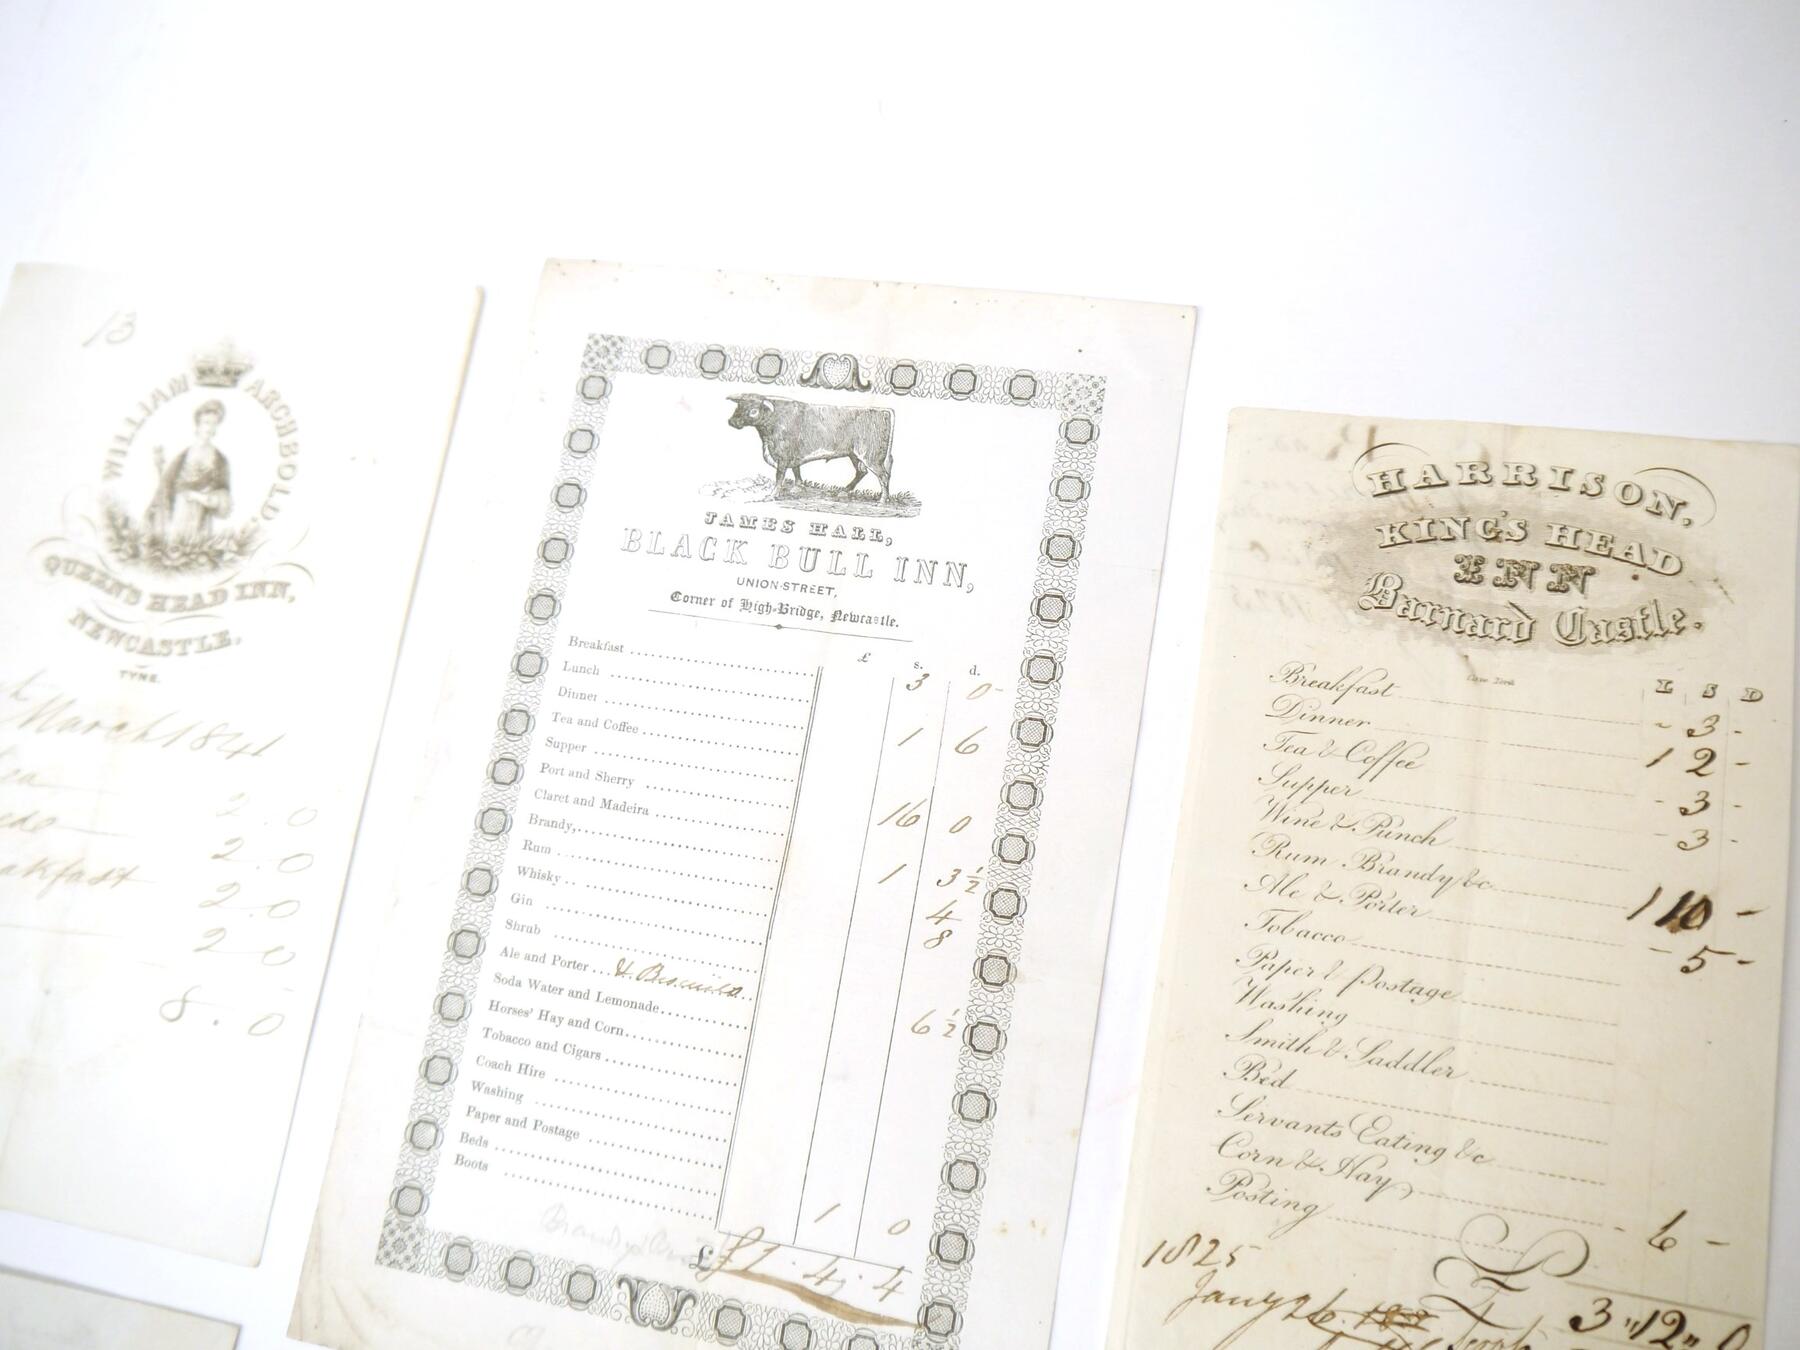 13
WILLIAM ARCHBOLD.
QUEEN'S HEAD INN,
NEWCASTLE,
TYNE.
March 1841
2.0
2.0
akfast 2.0
2.0
8.0
JAMES HALL,
BLACK BULL INN,
UNION-STREET,
Corner of High-Bridge, Newcastle.
£ s. d.
Breakfast 3 0
Lunch
Dinner 1 6
Tea and Coffee
Supper
Port and Sherry 16 0
Claret and Madeira
Brandy, 1 3½
Rum 4
Whisky 8
Gin
Shrub
Ale and Porter 6½
Soda Water and Lemonade
Horses' Hay and Corn
Tobacco and Cigars
Coach Hire
Washing
Paper and Postage
Beds
Boots 1 0
£ £1.4.4
HARRISON,
KING'S HEAD
INN
Barnard Castle.
L S D
Breakfast - 3 -
Dinner 1 2 -
Tea & Coffee - 3 -
Supper - 3 -
Wine & Punch
Rum Brandy &c 1 10 -
Ale & Porter - 5 -
Tobacco
Paper & Postage
Washing
Smith & Saddler
Bed
Servants Eating &c
Corn & Hay
Posting - 6 -
1825
Jany 26 3 " 12 " 0